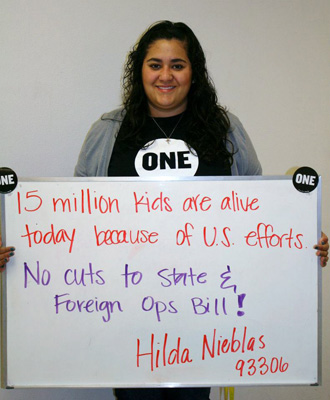 ONE
ONE
ONE
15 million kids are alive
today because of U.S. efforts.
No cuts to State &
Foreign Ops Bill!
Hilda Nieblas
93306